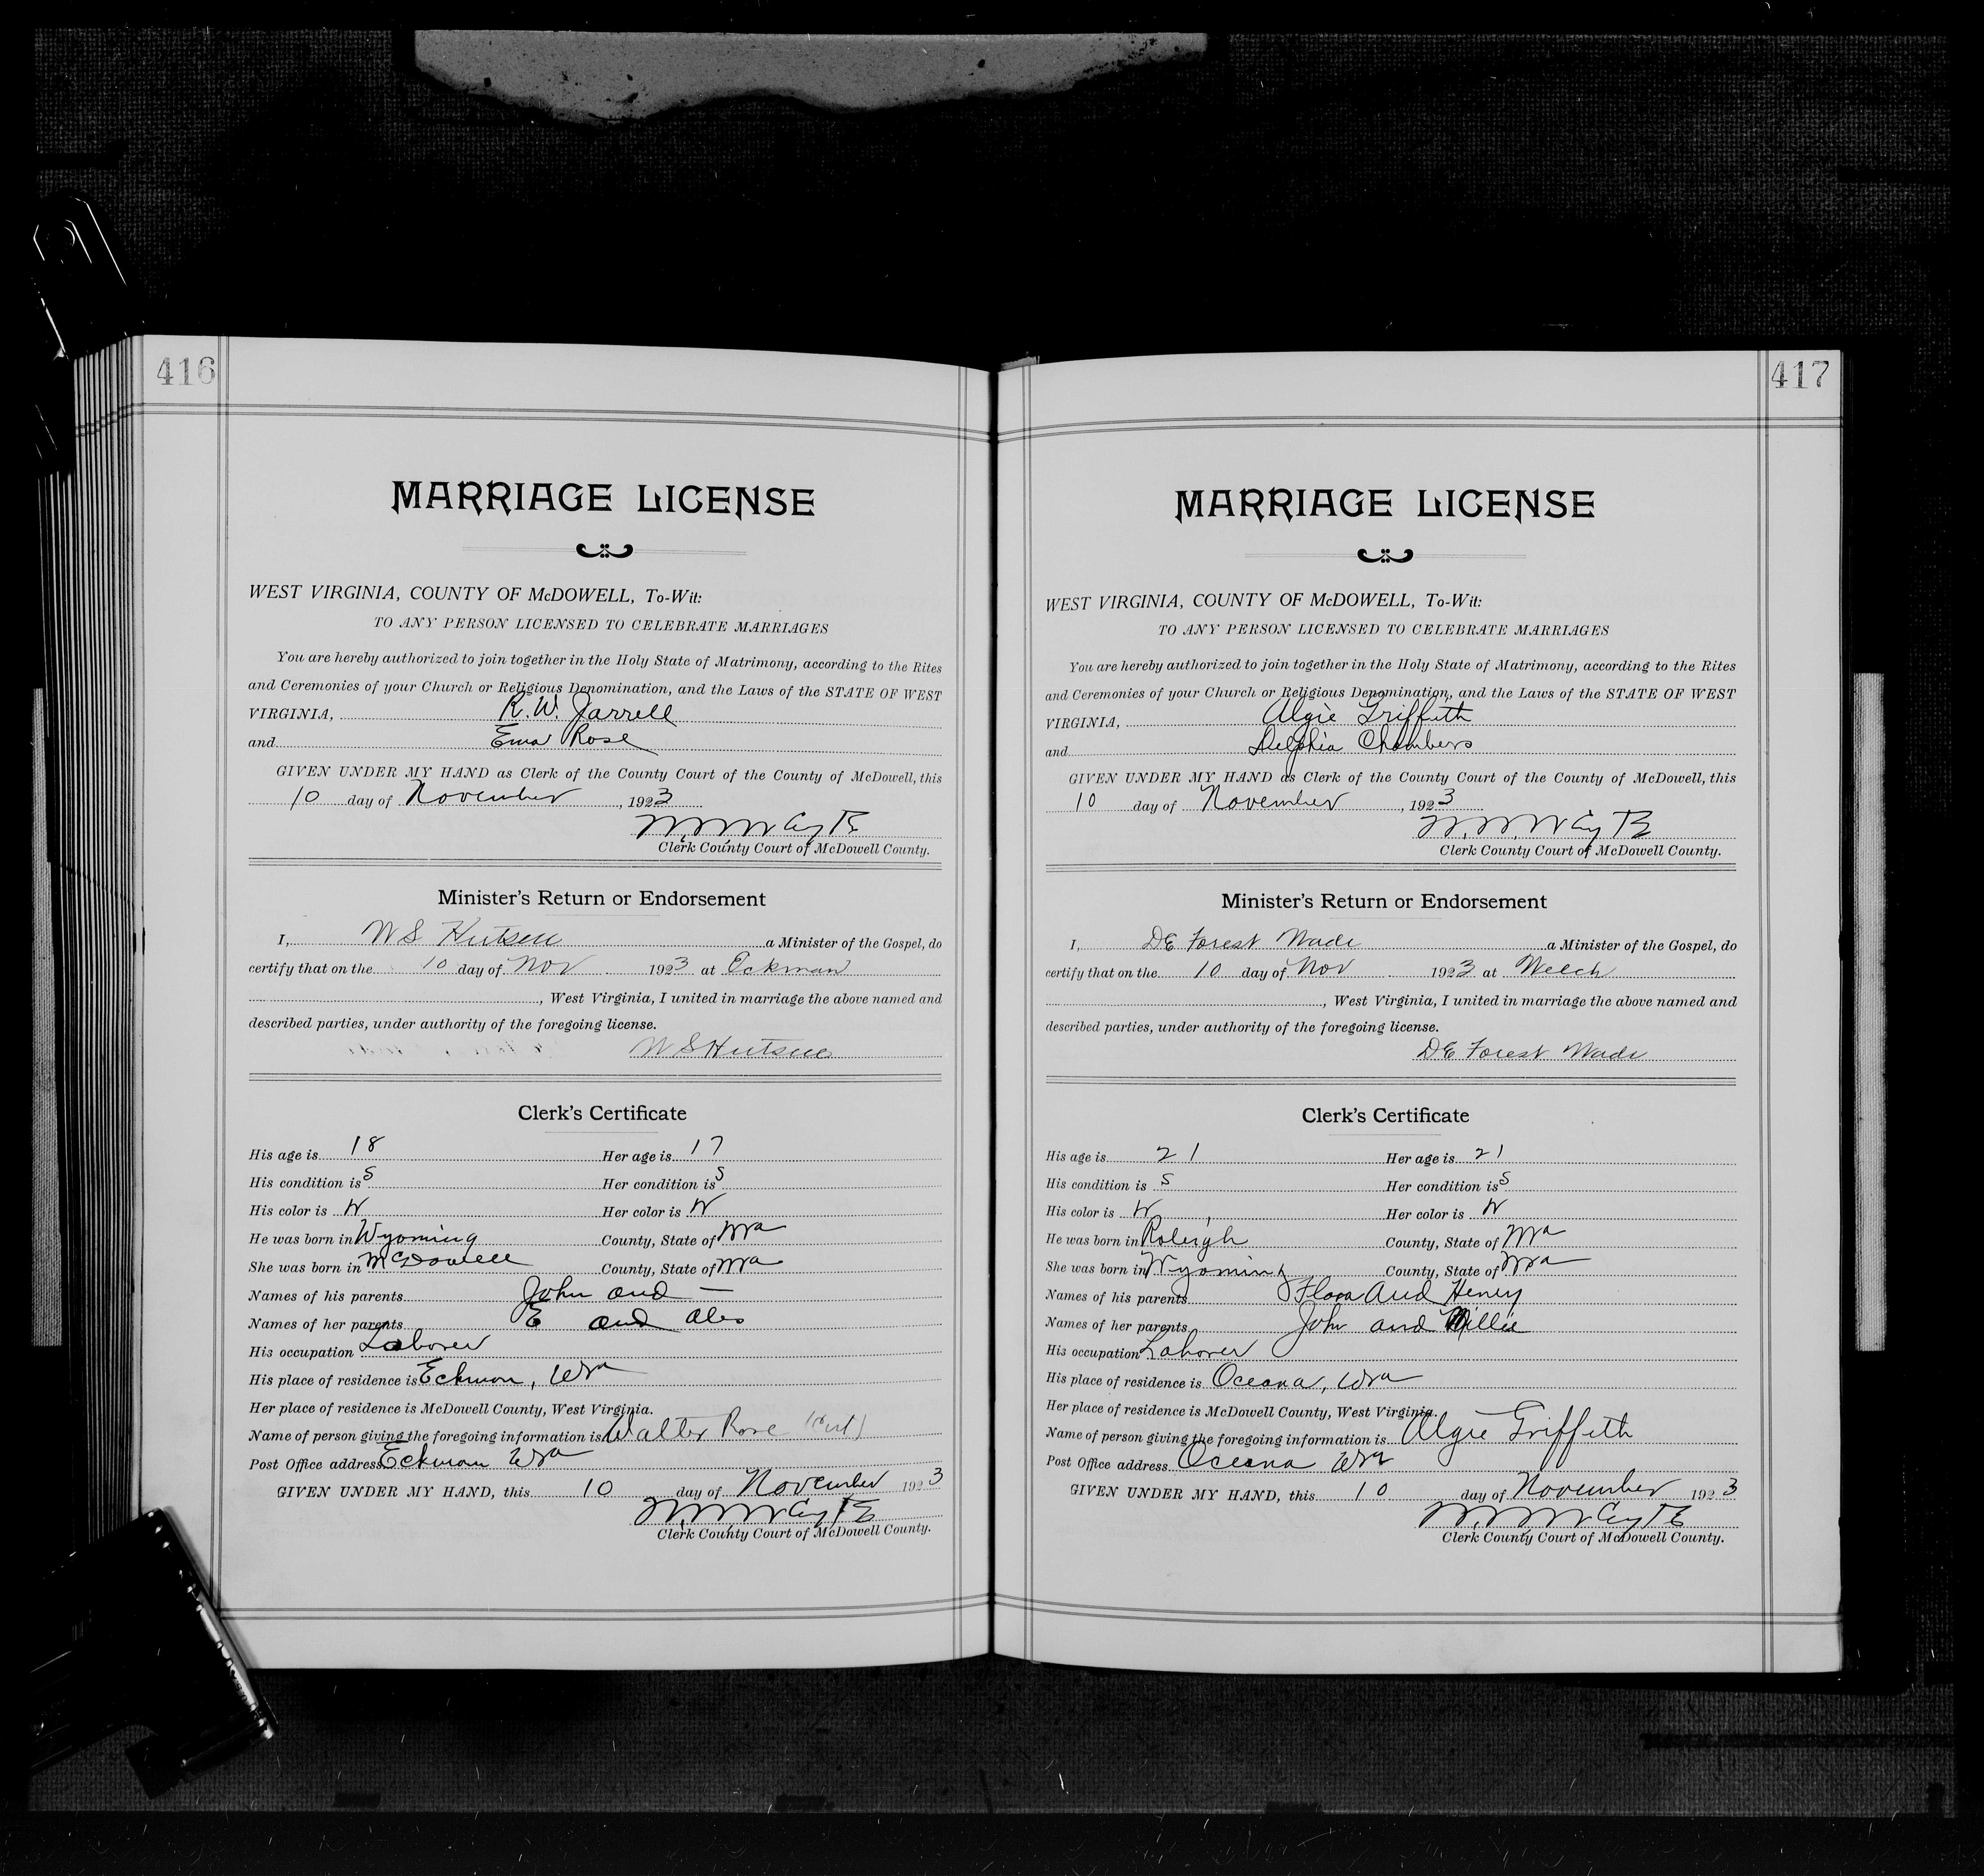 416
MARRIAGE LICENSE
WEST VIRGINIA, COUNTY OF McDOWELL, To-Wit:
TO ANY PERSON LICENSED TO CELEBRATE MARRIAGES
You are hereby authorized to join together in the Holy State of Matrimony, according to the Rites
and Ceremonies of your Church or Religious Denomination, and the Laws of the STATE OF WEST
VIRGINIA, R. W. Jarrell
and Ema Rose
GIVEN UNDER MY HAND as Clerk of the County Court of the County of McDowell, this
10 day of November, 1923
Clerk County Court of McDowell County.
Minister's Return or Endorsement
I, W S a Minister of the Gospel, do
certify that on the 10 day of Nov 1923 at Eckman
, West Virginia, I united in marriage the above named and
described parties, under authority of the foregoing license.
W S
Clerk's Certificate
His age is 18 Her age is 17
His condition is S Her condition is S
His color is W Her color is W
He was born in Wyoming County, State of Wva
She was born in McDowell County, State of Wva
Names of his parents John and —
Names of her parents E and
His occupation Laborer
His place of residence is Eckman, Wva
Her place of residence is McDowell County, West Virginia.
Name of person giving the foregoing information is Walter Rose
Post Office address Eckman Wva
GIVEN UNDER MY HAND, this 10 day of November 1923
Clerk County Court of McDowell County.
417
MARRIAGE LICENSE
WEST VIRGINIA, COUNTY OF McDOWELL, To-Wit:
TO ANY PERSON LICENSED TO CELEBRATE MARRIAGES
You are hereby authorized to join together in the Holy State of Matrimony, according to the Rites
and Ceremonies of your Church or Religious Denomination, and the Laws of the STATE OF WEST
VIRGINIA, Algie Griffith
and Delphia Chambers
GIVEN UNDER MY HAND as Clerk of the County Court of the County of McDowell, this
10 day of November, 1923
Clerk County Court of McDowell County.
Minister's Return or Endorsement
I, DE Forest Wade a Minister of the Gospel, do
certify that on the 10 day of Nov 1923 at Welch
, West Virginia, I united in marriage the above named and
described parties, under authority of the foregoing license.
DE Forest Wade
Clerk's Certificate
His age is 21 Her age is 21
His condition is S Her condition is S
His color is W Her color is W
He was born in Raleigh County, State of Wva
She was born in Wyoming County, State of Wva
Names of his parents Flora and Henry
Names of her parents John and Millie
His occupation Laborer
His place of residence is Oceana, Wva
Her place of residence is McDowell County, West Virginia.
Name of person giving the foregoing information is Algie Griffith
Post Office address Oceana Wva
GIVEN UNDER MY HAND, this 10 day of November 1923
Clerk County Court of McDowell County.